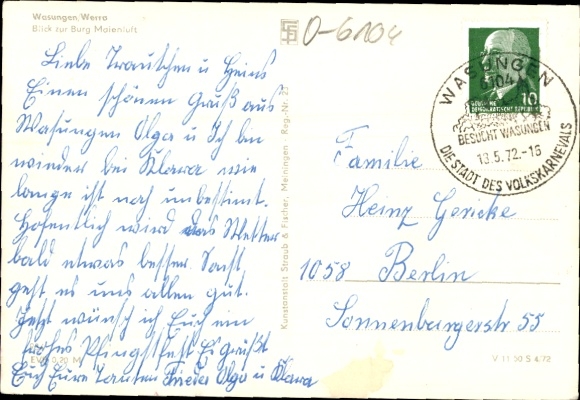 Wasungen/Werra
Blick zur Burg Maienluft
O-6104
Liebe Trautchen u Heins
Einen schönen Gruß aus
Wasungen Olga u Ich bin
wieder bei Klara wie
lange ist noch unbestimt.
Hofentlich wird das Wetter
bald etwas besser. Sonst
geht es uns allen gut.
Jetzt wünsch ich Euch ein
frohes Pfingstfest Es Grüßt
Euch Eure Tanten Frieda Olga u Klara
EVP 0,20 M
Kunstanstalt Straub & Fischer, Meiningen · Reg.-Nr. 25
V 11 50 S 4/72
DEUTSCHE
DEMOKRATISCHE REPUBLIK
10
WASUNGEN
6104
BESUCHT WASUNGEN
13.5.72.-16
DIE STADT DES VOLKSKARNEVALS
Familie
Heinz Gericke
1058 Berlin
Sonnenburgerstr 55